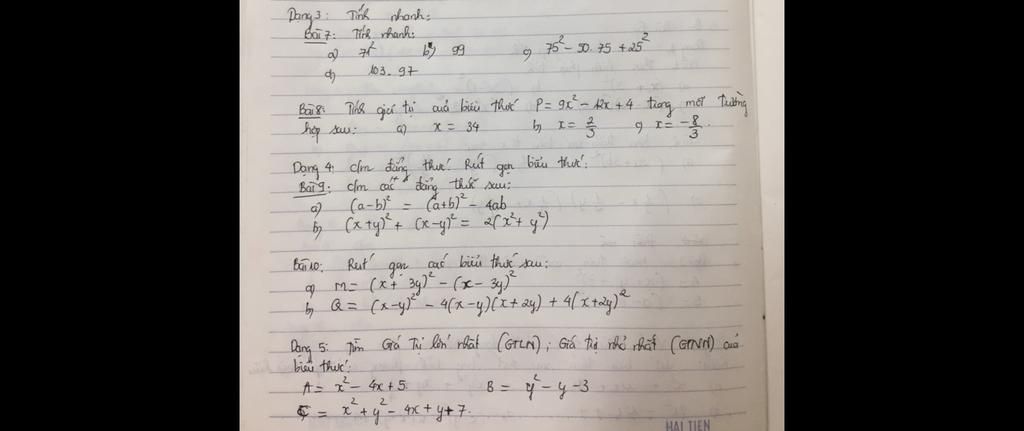 Dạng 3: Tính nhanh:
Bài 7: Tính nhanh:
a) 71² b) 99 c) 75² - 50.75 + 25²
d) 103.97
Bài 8: Tính giá trị của biểu thức P = 9x² - 12x + 4 trong mỗi trường
hợp sau: a) x = 34 b) x = 2/3 c) x = -8/3.
Dạng 4: c/m đẳng thức. Rút gọn biểu thức.
Bài 9: c/m các đẳng thức sau:
a) (a-b)² = (a+b)² - 4ab
b) (x+y)² + (x-y)² = 2(x² + y²)
Bài 10: Rút gọn các biểu thức sau:
a) M = (x + 3y)² - (x - 3y)²
b) Q = (x-y)² - 4(x-y)(x+2y) + 4(x+2y)²
Dạng 5: Tìm Giá Trị lớn nhất (GTLN); Giá trị nhỏ nhất (GTNN) của
biểu thức:
A = x² - 4x + 5 B = y² - y - 3
C = x² + y² - 4x + y + 7.
HẢI TIẾN